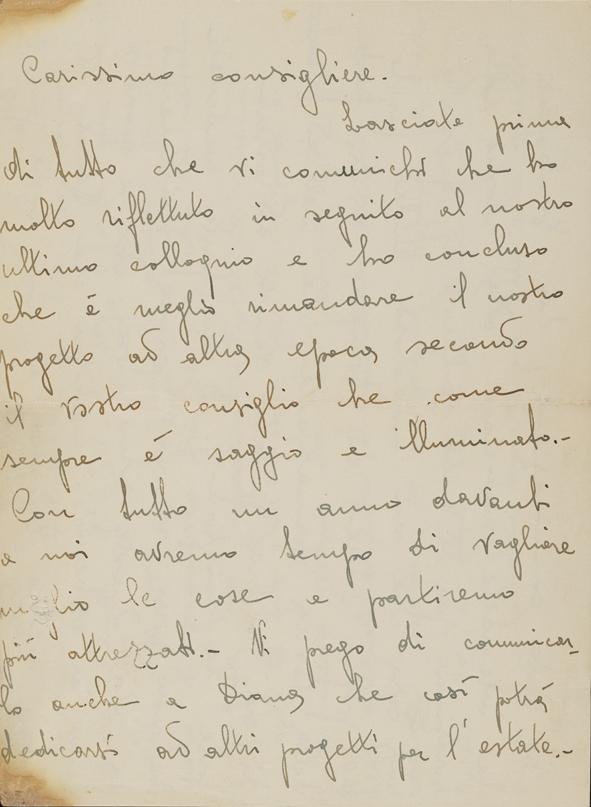 Carissimo consigliere.
Lasciate prima
di tutto che vi comunichi che ho
molto riflettuto in seguito al nostro
ultimo colloquio e ho concluso
che é meglio rimandare il nostro
progetto ad altra epoca secondo
il vostro consiglio che come
sempre é saggio e illuminato.-
Con tutto un anno davanti
a noi avremo tempo di vagliare
meglio le cose e partiremo
più attrezzati.- Vi prego di comunicar_
lo anche a Diana che così potrà
dedicarsi ad altri progetti per l'estate.-